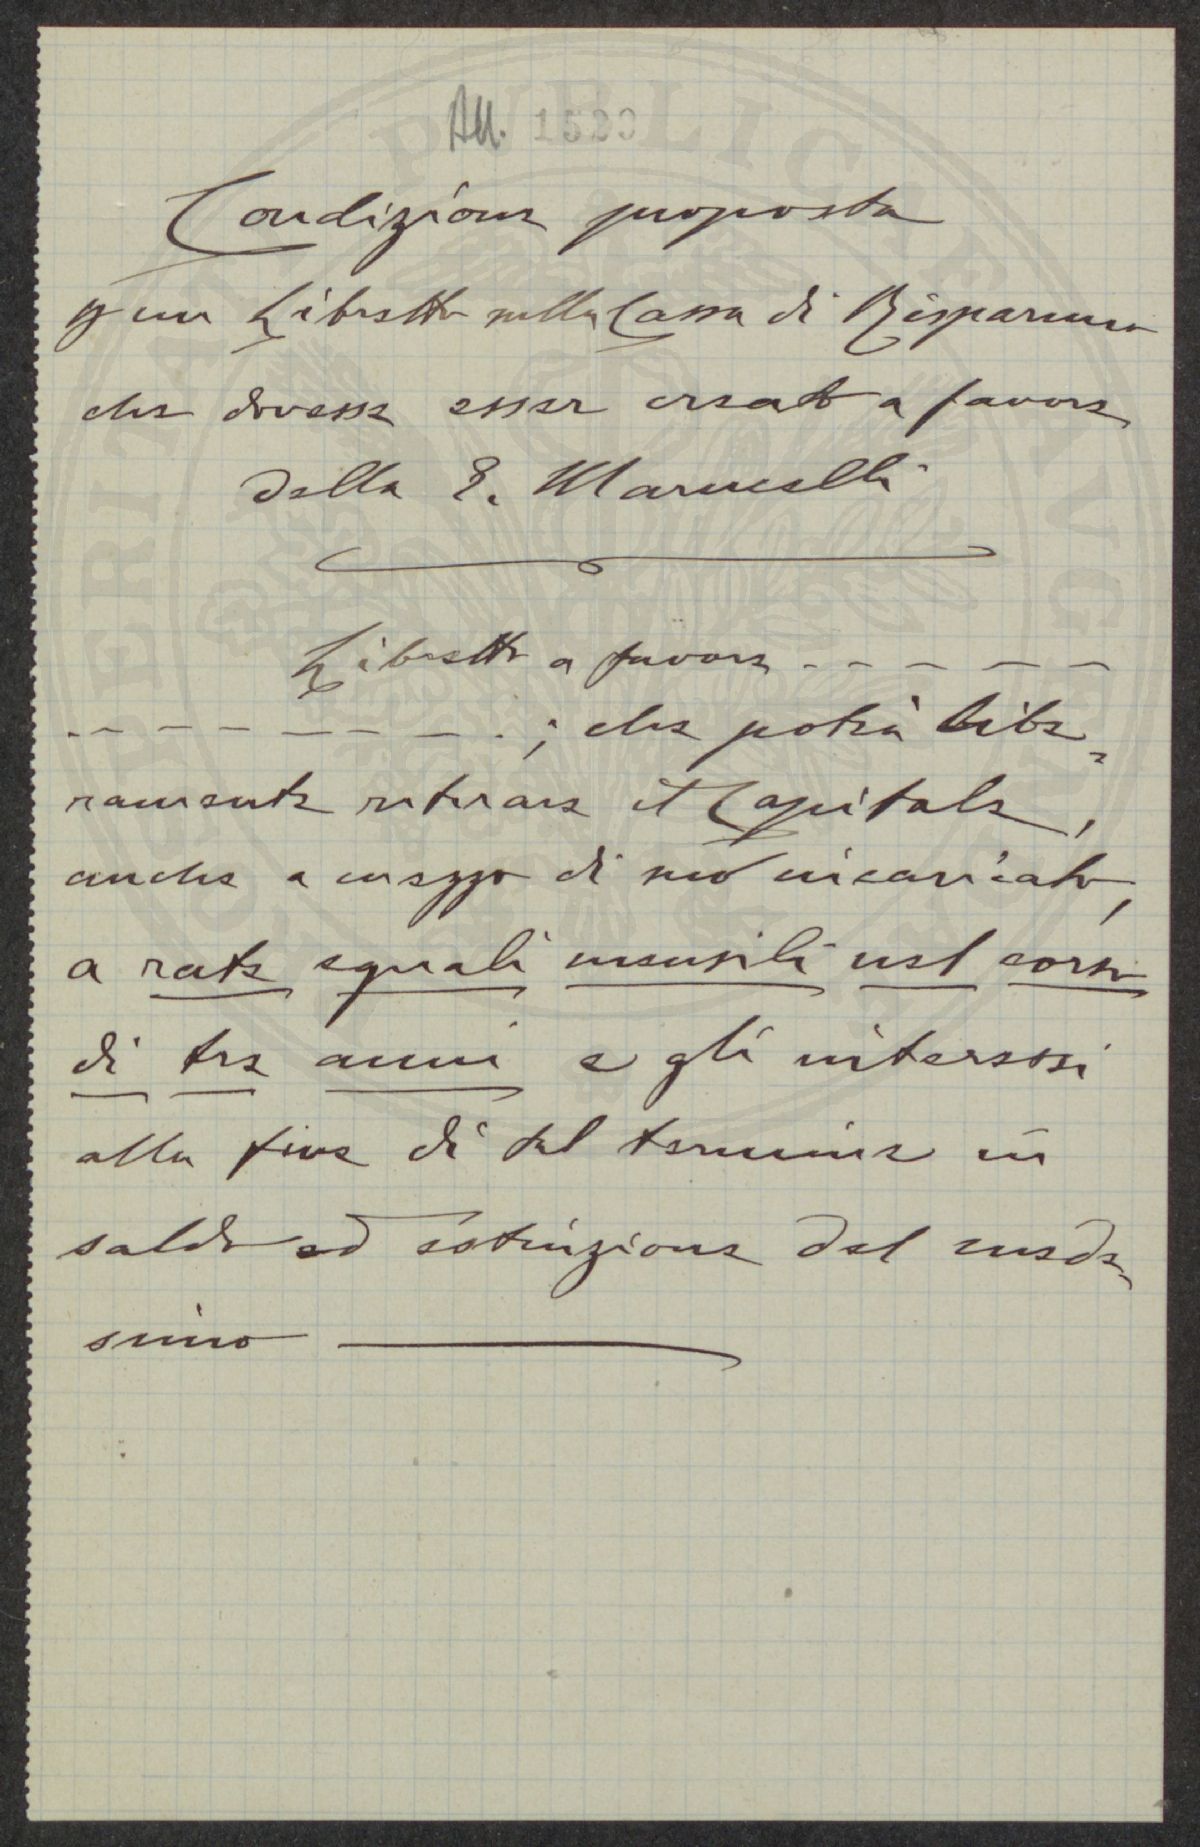 All. 1520
Condizione proposta
p un Libretto sulla Cassa di Risparmio
che dovesse esser creato a favore
della E. Marucelli
Libretto a favore - - - - - -
- - - - - - - - ; che potrà libe=
ramente ritirare il Capitale,
anche a mezzo di suo incaricato,
a rate eguali mensili nel corso
di tre anni e gli interessi
alla fine di tal termine in
saldo ed estinzione del mede=
simo